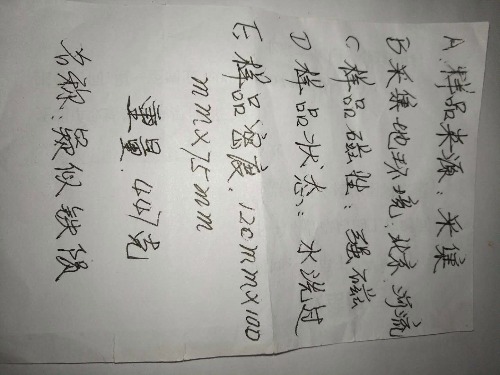 A 样品来源：采集
B 采集地环境：北京 河流
C 样品磁性：强磁
D 样品状态：水洗过
E：样品密度：120mm×100
mm×75mm
重量：447克
名称：疑似铁陨